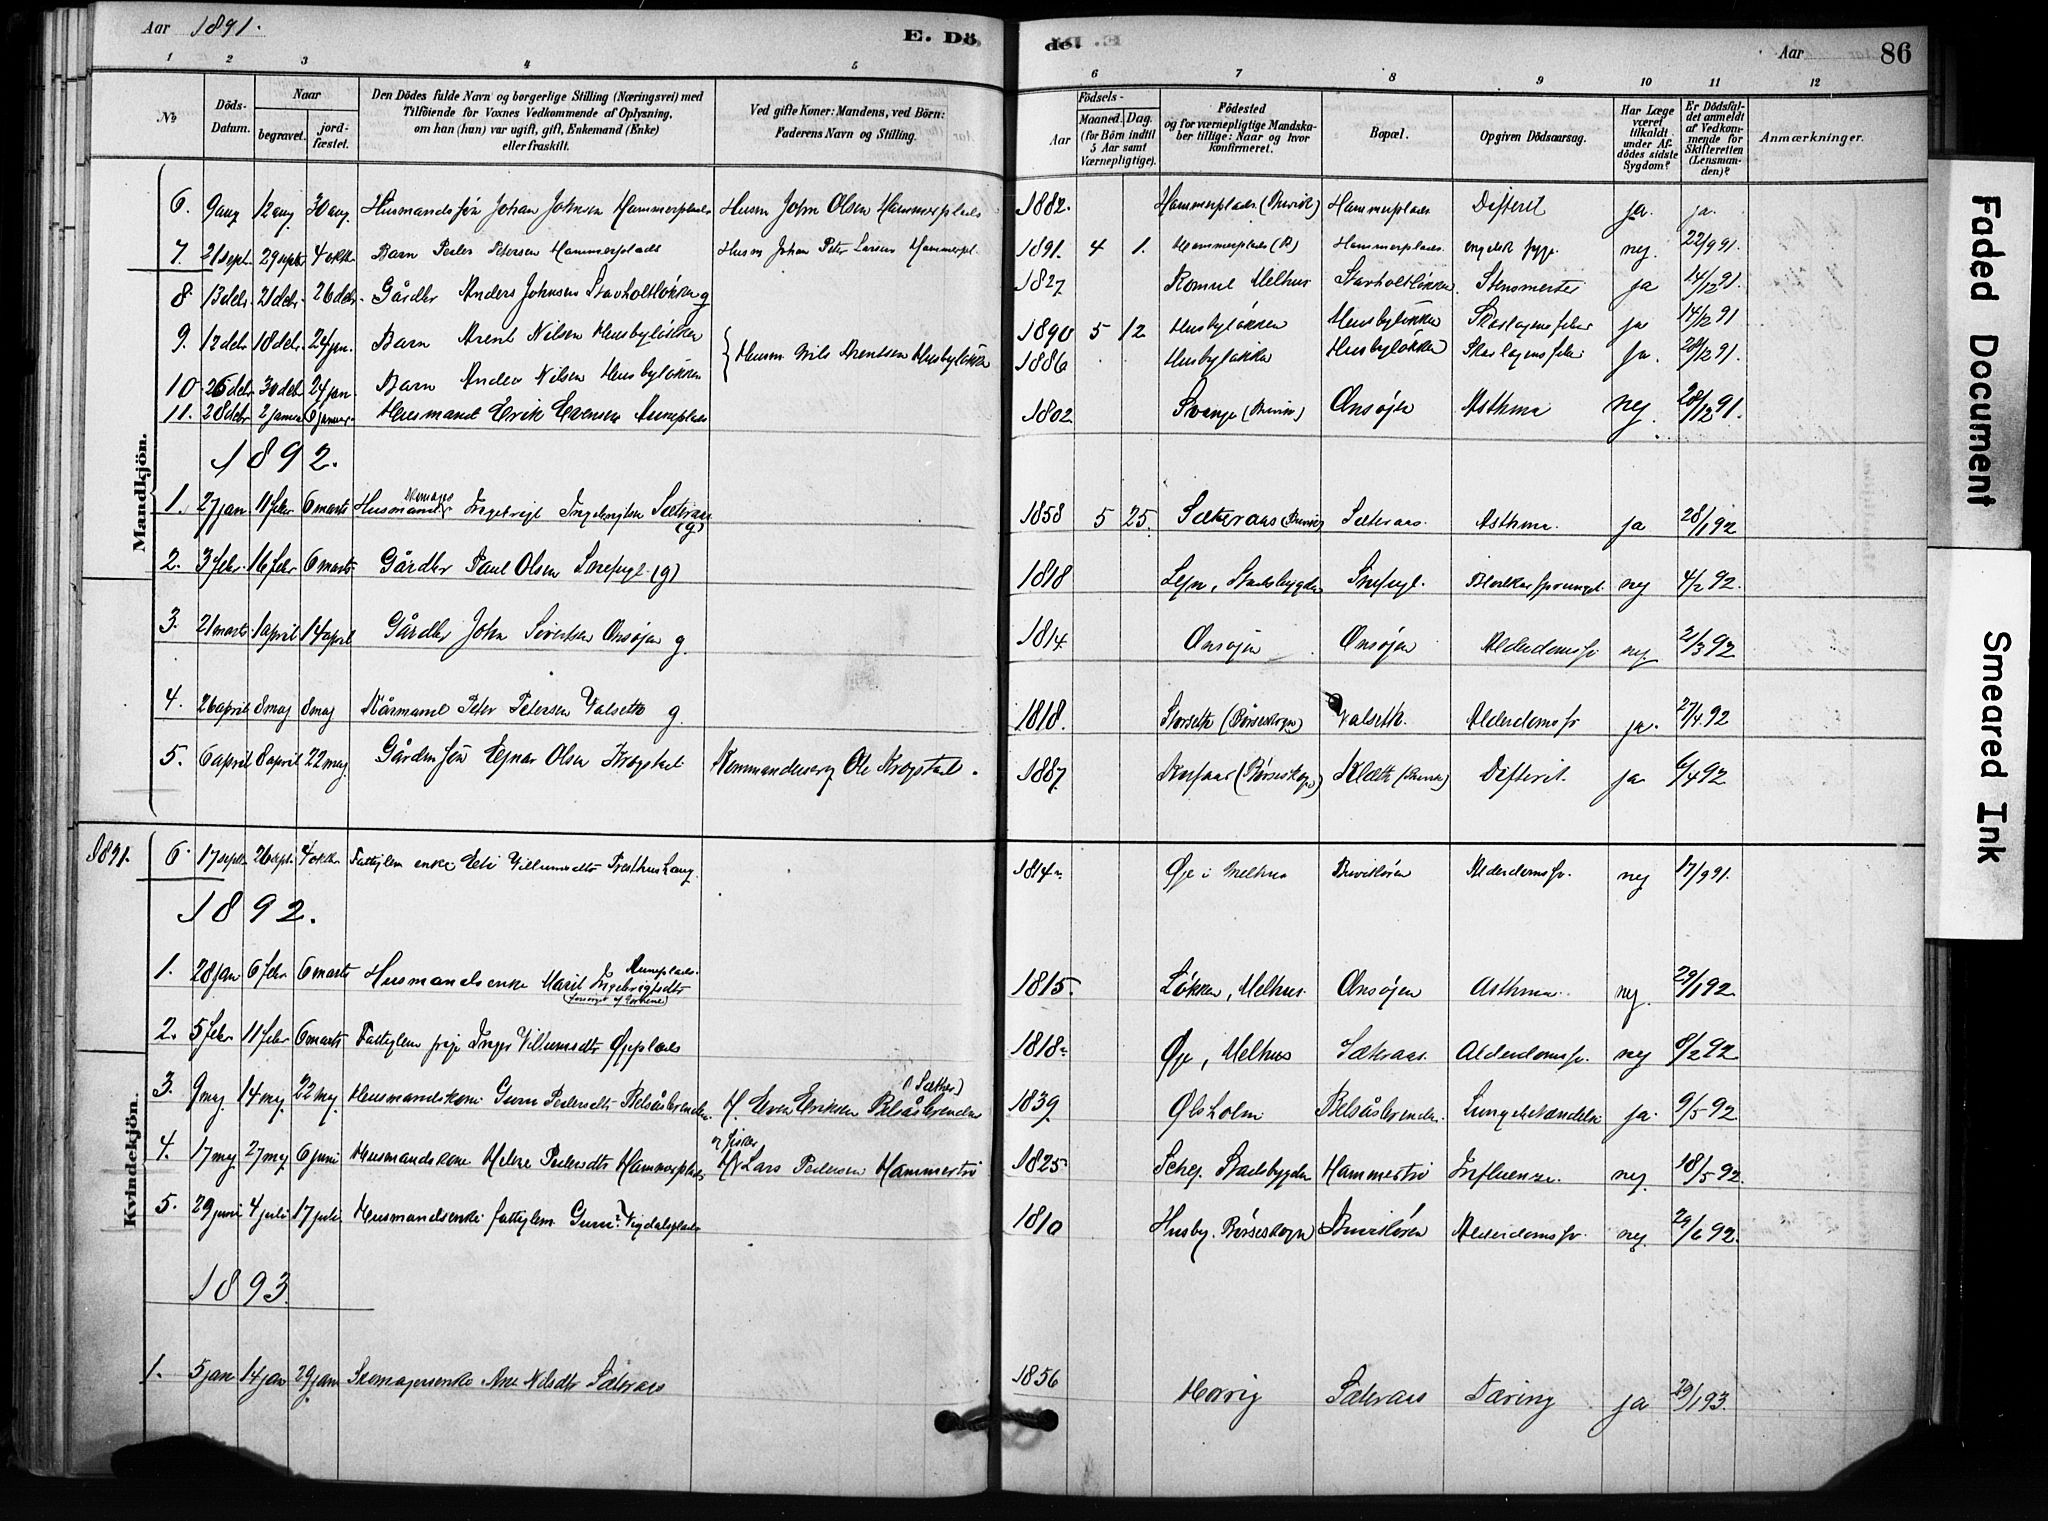 Aar 1891. E. Dö de. Aar 86
1 2 3 4 5 6 7 8 9 10 11 12
No
Döds-Datum.
Naar
begravet. jord-fæstet.
Den Dödes fulde Navn og borgerlige Stilling (Næringsvei) med
Tilföiende for Voxnes Vedkommende af Oplysning,
om han (hun) var ugift, gift, Enkemand (Enke)
eller fraskilt.
Ved gifte Koner: Mandens, ved Börn:
Faderens Navn og Stilling.
Födsels-
Aar
Maaned. Dag.
(for Börn indtil
5 Aar samt
Værnepligtige).
Födested
og for værnepligtige Mandska-
ber tillige: Naar og hvor
konfirmeret.
Bopæl.
Opgiven Dödsaarsag.
Har Læge
været
tilkaldt
under Af-
dödes sidste
Sygdom?
Er Dödsfal-
det anmeldt
af Vedkom-
mende for
Skifteretten
(Lensman-
den)?
Anmærkninger.
Mandkjön.
6. 9 aug 12 aug. 30 aug. Husmandssön Johan Johnsen Hammerplads Husm John Olsen Hammerplads 1882. Hammerplads Hammerplads Difterit ja. ja.
7. 21 sept. 29 septr 4 oktbr. Barn Peder Petersen Hammerplads Husm Johan Peter Larsen Hammerpl. 1891. 4 1. Hammerplads (B) Hammerplads. engelsk syge. nej. 22/9 91.
8. 13 debr. 21 debr. 26 debr. Gårdbr Anders Johnsen Stavholtløkken g 1827 Melhus Stavholtløkken. ja 14/12 91.
9. 12 debr. 18 debr. 24 jan. Barn Arent Nilsen Husbyløkken Husm Nils Arentsen Husbyløkken 1890 5 12. Husbyløkken Husbyløkken Skarlagensfeber ja 14/12 91
10 26 debr. 30 debr. 24 jan. Barn Anders Nilsen Husbyløkken 1886 Husbyløkken Husbyløkken Skarlagensfeber ja. 28/12 91.
11. 28 debr 2 januar 6 januar. Husmand Erik Evensen Auneplads 1802 Onsøjen Asthma nej. 28/12 91.
1892.
1. 27 jan 11 febr 6 marts Husmand Skomager Ingebrigt Ingebrigtsen Sæteraas (g) 1858 5 25. Sæteraas Sæteraas. Asthma. ja 28/1 92
2. 3 febr. 16 febr 6 marts Gårdbr Paul Olsen Snefugl (g) 1818 Lejn, Stadsbygden Snefugl. nej 4/2 92.
3. 21 marts 1 april 14 april Gårdbr John Sivertsen Onsøjen g. 1814. Onsøjen Onsøjen Alderdomssv. nej 21/3 92
4. 26 april 8 maj 8 maj Kårmand Peter Petersen Valsette g. 1818. Storsette (Børseskogn) Valsette. Alderdomssv ja. 27/4 92
5. 6 april 8 april 22 maj. Gårdmsön Ejnar Olsen Krogstad Ole Krogstad. 1887. (Børseskogn) Klætte Difterit. ja 6/4 92
Kvindekjön.
1891. 6. 17 septr 26 sept. 4 oktbr. Fattiglem enke Villumsdtr 1814. Øje i Melhus Buvikören Alderdomssv. nej 17/9 91.
1892.
1. 28 jan 6 febr 6 marts Husmandsenke Marit Ingebrigtsdtr Auneplads. (forsörget af Börnene) 1815. Løkken, Melhus. Onsøjen Asthma. nej. 29/1 92
2. 5 febr 11 febr 6 marts Fattiglem pige Inger Villumsdtr Øjeplads 1818. Øje, Melhus Sæteraas. Alderdomssv. nej 6/2 92
3. 9 maj 14 maj 22 maj. Husmandskone Guru Pedersdtr Belsåsbrenden. H. Even Eriksen Belsåsbrenden (Sæther) 1839. Ølsholm Belsåsbrenden. Lungebetændelse ja. 9/5 92.
4. 17 maj 27 maj 6 juni Husmandskone Helene Pedersdtr Hammerplads H. og fisker Lars Pedersen Hammertrö 1825 Schej. Stadsbygden Hammertrö Influenza. nej. 18/5 92.
5. 29 juni 4 juli 17 juli Husmandsenke fattiglem Guru Vigdalsplads 1810 Husby. Børseskogn Buvikören Alderdomssv. nej. 29/6 92.
1893.
1. 5 jan 14 jan 29 jan Skomagerenke Ane Nilsdtr Sæteraas 1856 Horrig Sæteraas Tæring ja 29/1 93.
Faded Document
Smeared Ink